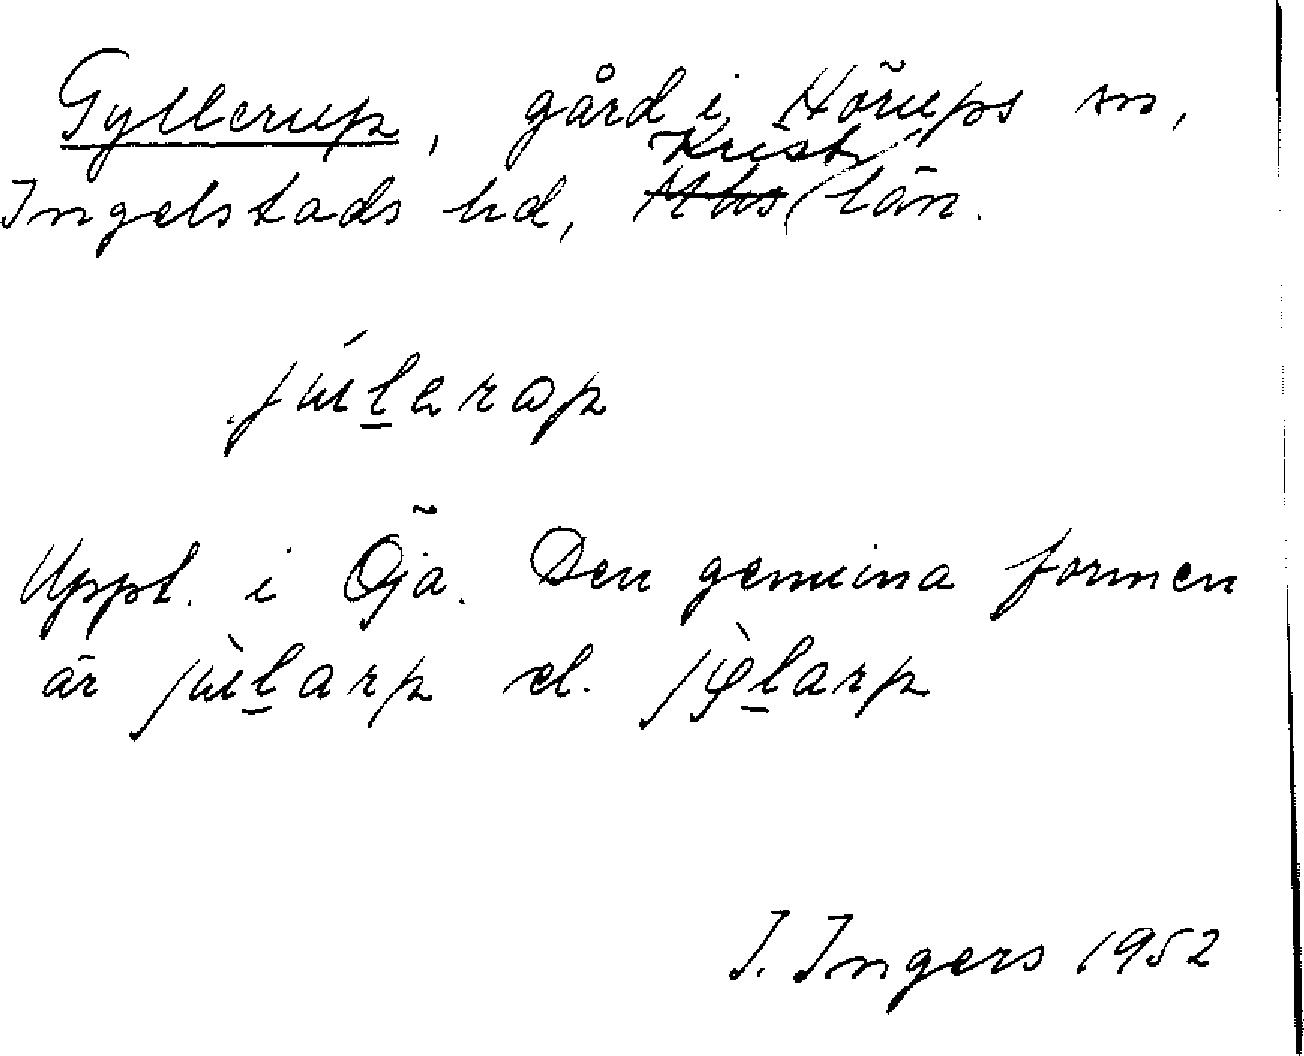 Gyllerup, gård i Hörups sn,
Ingelstads hd, Krist län.

júl̲arap

Uppt. i Öja. Den gemena formen
är jùl̲arp el. jỳl̲arp

I. Ingers 1952